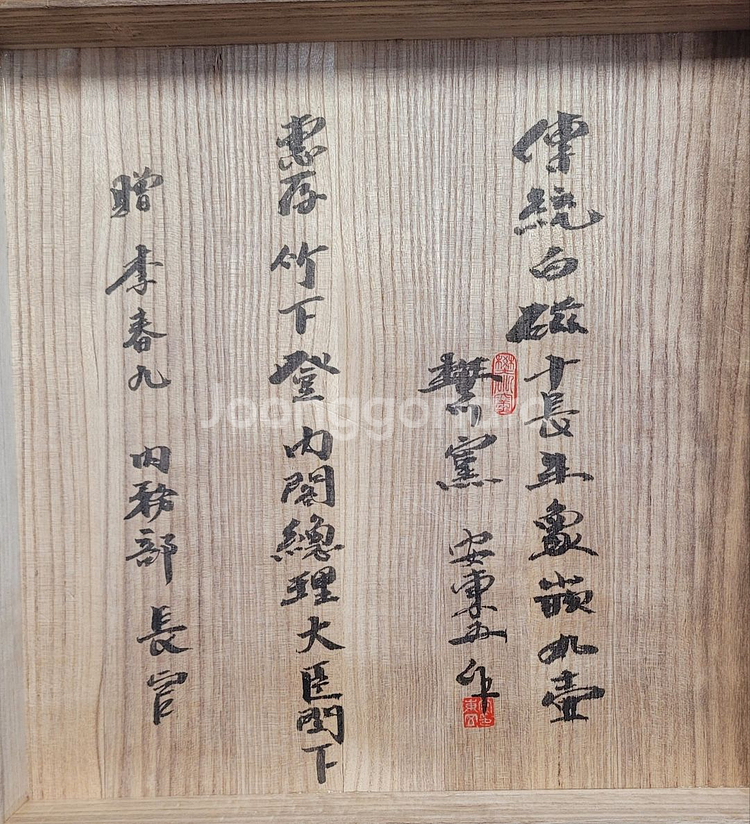 傳統白磁十長生象嵌丸壺
樊川窯 安東五 作
惠存 竹下 登 內閣總理大臣閣下
贈 李春九 內務部 長官